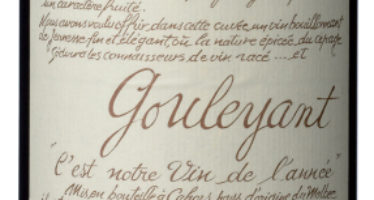 un caractère fruité.
Nous avons voulu offrir dans cette cuvée un vin bouillonnant
de jeunesse fin et élégant, où la nature épicée du cépage
les connaisseurs de vin racé .... et
Gouleyant
"C'est notre Vin de l'année"
Mis en bouteille à Cahors, pays d'origine du Malbec